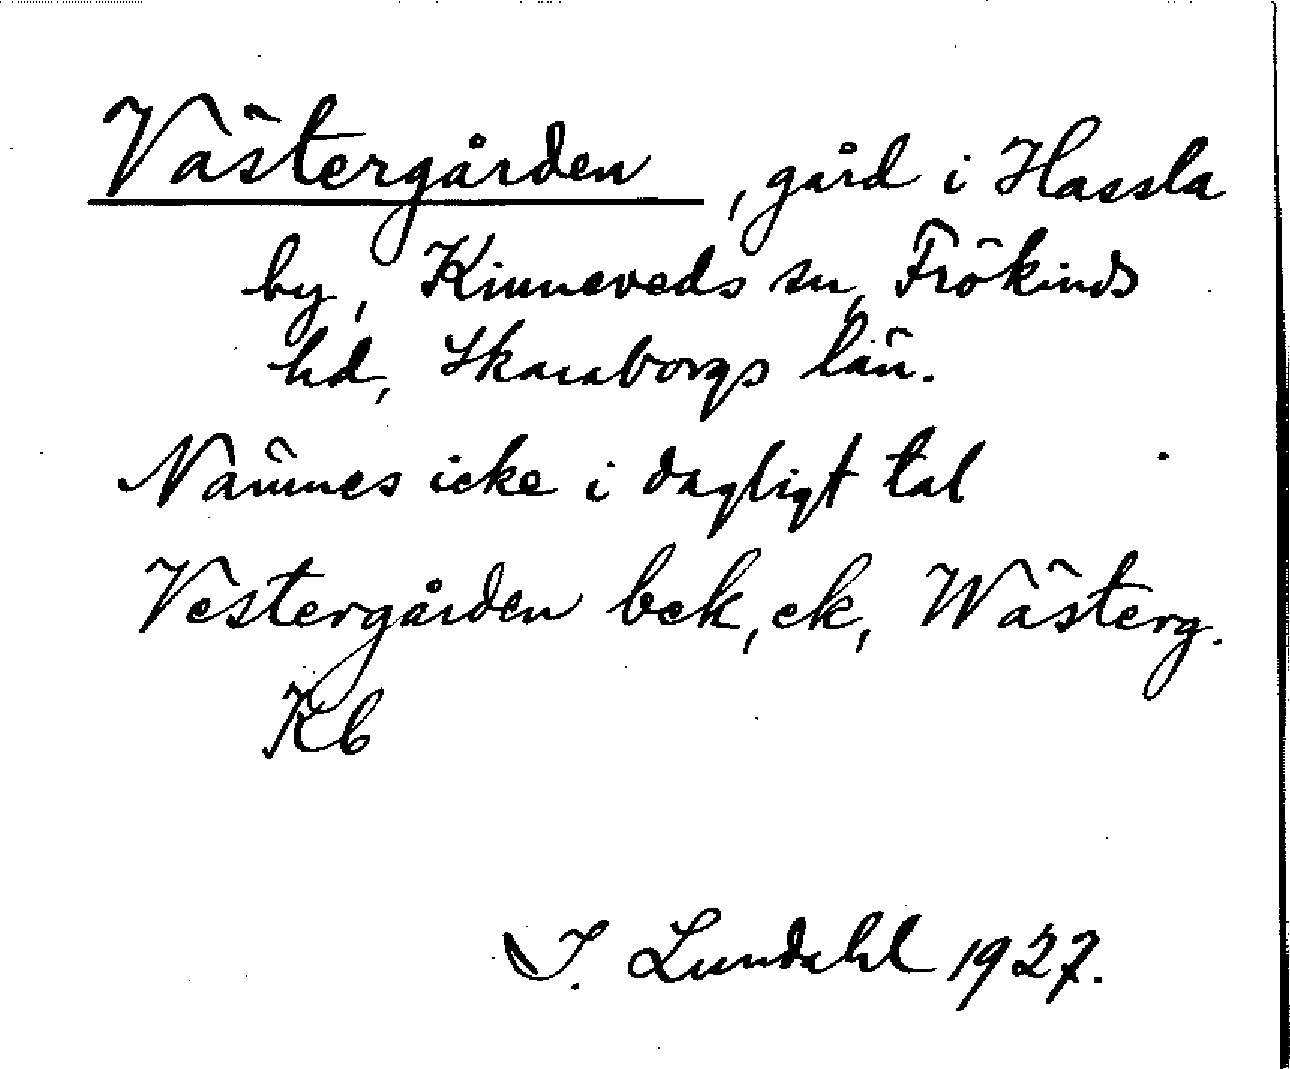 Västergården, gård i Hassla
by, Kinneveds sn, Frökinds
hd, Skaraborgs län.
Nämnes icke i dagligt tal
Vestergården bek, ek, Wästerg.
Kb
I. Lundahl 1927.